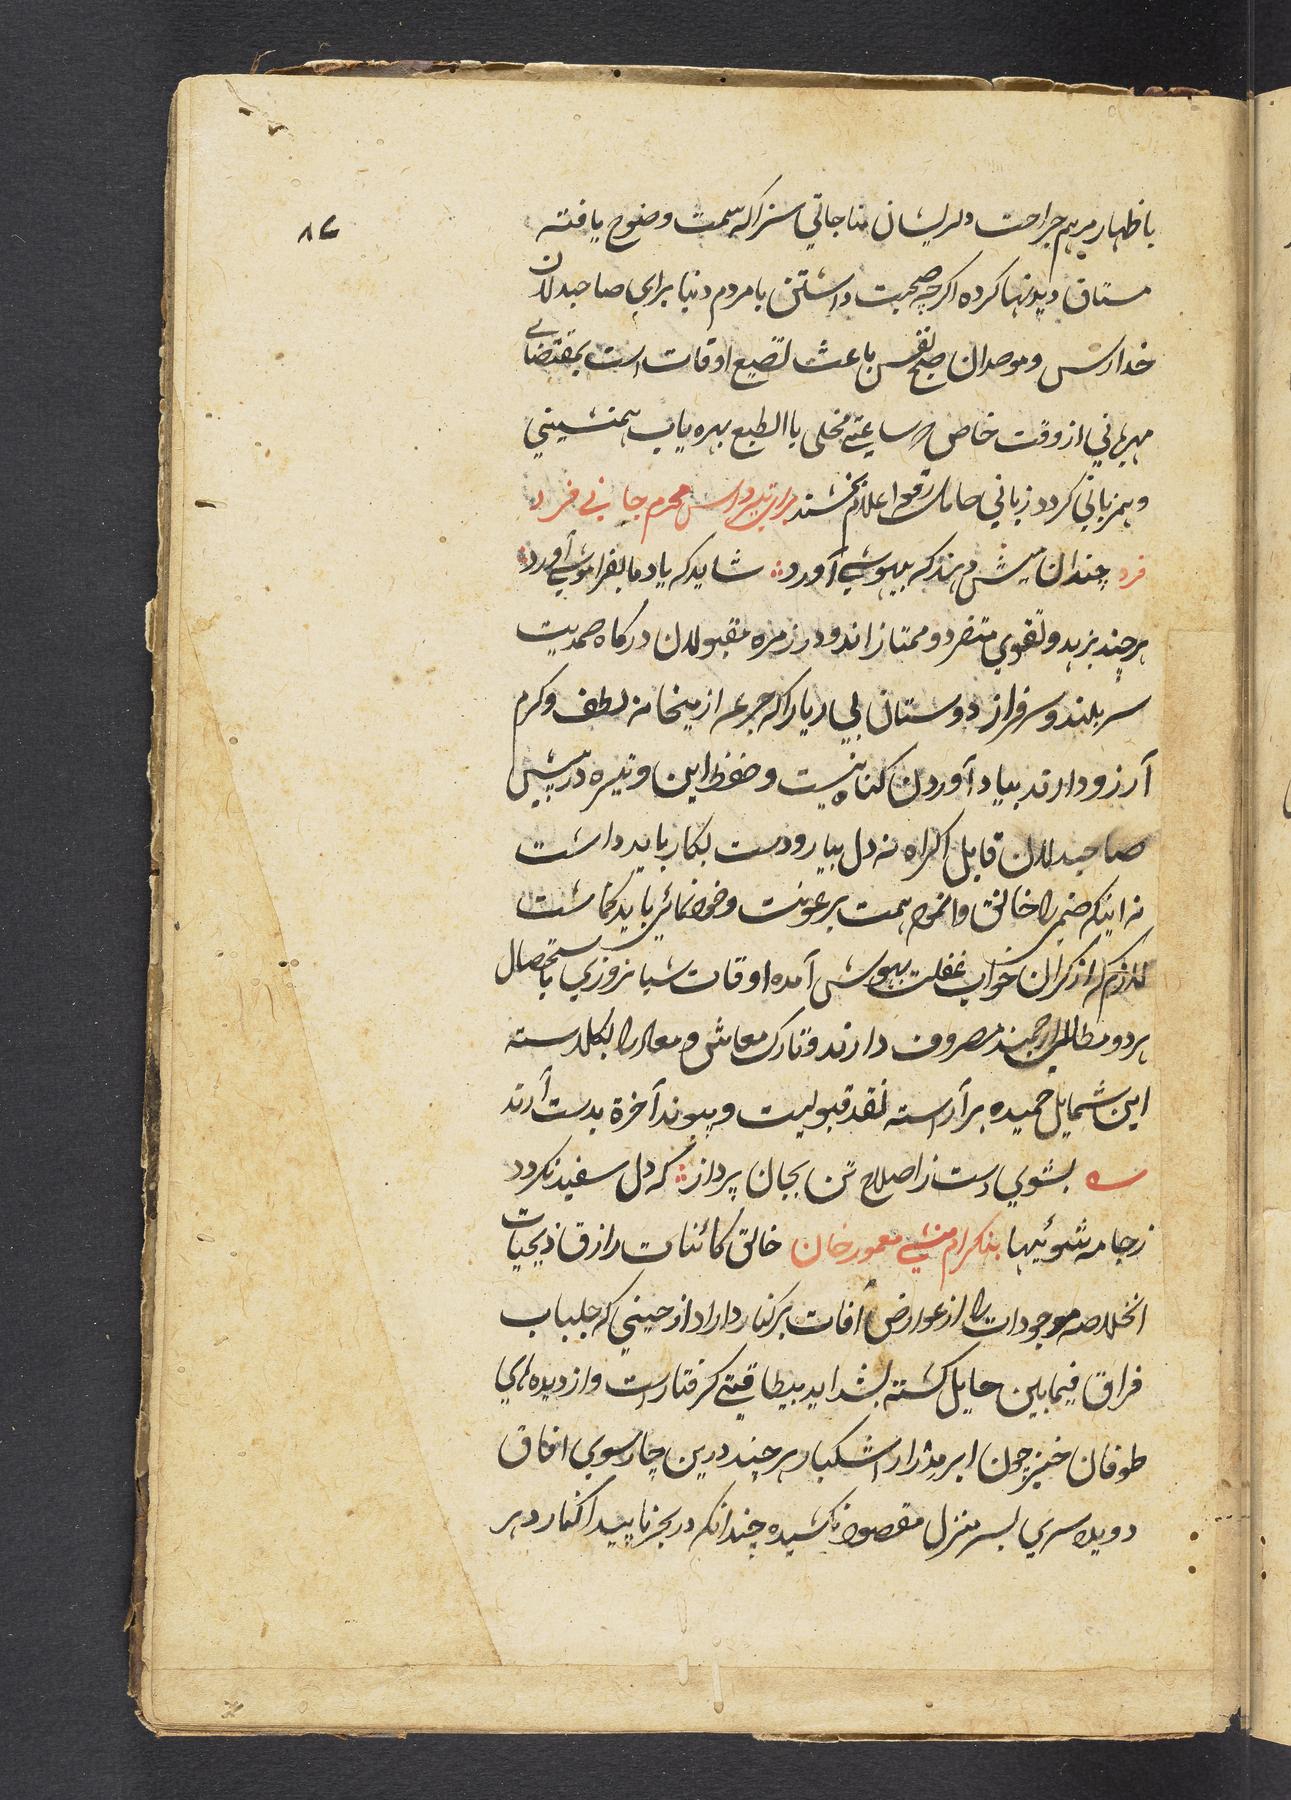 ۸۴
باظهار مرهم جراحت دلریشان مناجاتی سنرا که سمت وضوح یافته
مستان دیدنها کرده اکرچه صحبت داشتن بامردم دنیا برای صاحبدلان
خدارس و موحدان صبح نفس باعث تضیع اوقات است بمقتضای
مهربانی از وقت خاص ساعتی مخلی باالطبع بهره یاب همنشینی
و همزبانی کردد زبانی حاملان رقعه اعلام بخشند برای محرم جانی
فرد چندان میش دهند که بیهوشی آورد شاید که یاد ما بفراموشی آورد
هرچند بزهد و تقوی متفرد و ممتاز اند و در زمره مقبولان درکاه صمدیت
سربلند و سرفراز دوستان بی ریا را که جرعه از میخانه لطف و کرم
آرزو دارند بیاد آوردن کناه نیست و حفظ این وتیره در پیش
صاحبدلان قابل اکراه نه دل بیار و دست بکار باید داشت
نه اینکه خالق وانموده همت برعونت و خودنمائی باید کماشت
لازم که از کران خواب غفلت بهوش آمده اوقات شبانروزی باستحصال
هر دو مطالب ارجمند مصروف دارند و تارک معاش و معاد را بکلدسته
این شمایل حمیده برآراسته نقد قبولیت و پیوند آخرة بدست آرند
بشوی دست ز اصلاح تن بجان پرداز که دل سفید نکردد
ز جامه شوئیها بنکرام منشی معمور خان خالق کائنات رازق ذیحیات
انخلاصه موجودات را از عوارض آفات برکنار داراد از حینی که جلباب
فراق فیمابین حایل کشته بشداید بیطاقتی کرفتار است و از دیده های
طوفان خیز چون ابر مدرار اشکبار هرچند درین چارسوی آفاق
دوید سری بسر منزل مقصود نکشیده چندانکه در بحر ناپیدا کنار دهر